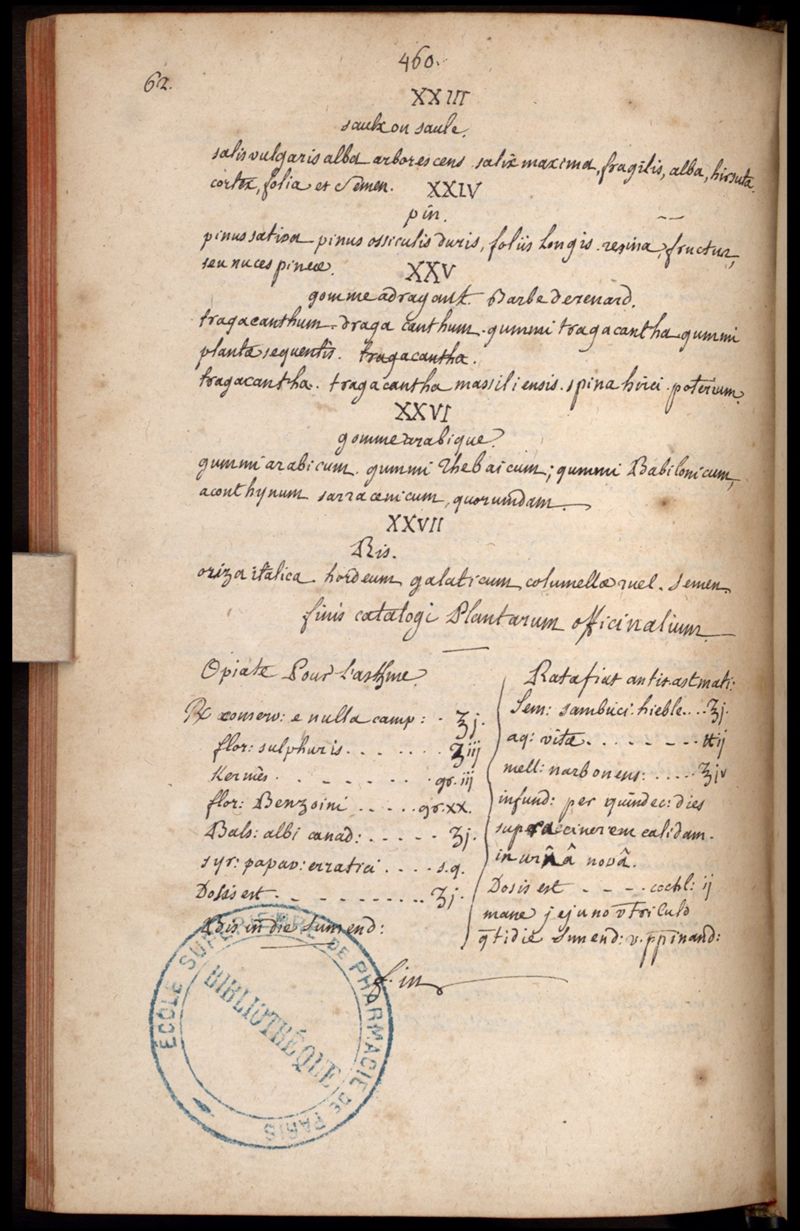 460.
62.
XXIII
saulx ou saule.
salis vulgaris alba arborescens salix maxima, fragilis, alba, hirsuta
cortex, folia et semen.
XXIV
pin.
pinus sativa pinus ossiculis duris, foliis longis. resina, fructus,
seu nuces pineæ.
XXV
gomme adragant. Barbe de renard.
tragacanthum. dragacanthum. gummi tragacantha gummi
plantæ sequentis. tragacantha.
tragacantha. tragacantha massiliensis. spina hirci. poterium.
XXVI
gomme arabique.
gummi arabicum. gummi Thebaicum; gummi Babilonicum,
aconthynum sarracenicum, quorumdam.
XXVII
Ris.
oriza italica. hordeum galaticum columellæ semen.
finis catalogi Plantarum officinalium
Opiate Pour L'asthme.
℞ conserv: enulla camp: . ʒj.
flor: sulphuris . . . . . . . ʒiij
Kermes . . . . . . . gr. iij
flor: Benzoini . . . . . gr. xx.
Bals: albi canad: . . . . . ʒj.
syr: papav: erratici . . . . s.q.
Dosis est . . . . . . . . . . ʒj.
Bis in die sumend:
Ratafiat antiastmati:
Sem: sambuci hieble . . . ʒj.
aq: vitæ . . . . . . . . ℔ij
mell: narbonens: . . . . . ʒjv
infund: per quindec: dies
supra cinerem calidam.
in urnâ novâ.
Dosis est - - - . cochl: ij
mane jejuno vtriculo
qtidie sumend: v. ppinand:
fin
ÉCOLE SUPÉRIEURE DE PHARMACIE DE PARIS
BIBLIOTHÉQUE